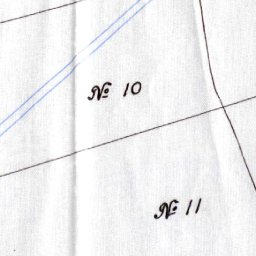 № 10
№ 11